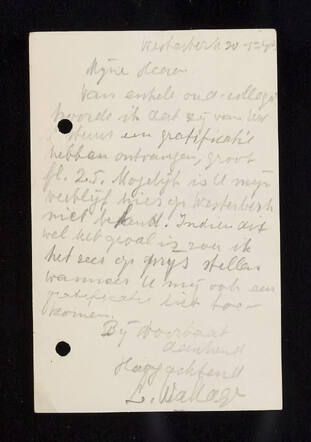 Westerbork 20-5-43
Mijne Heeren.
Van enkele oud-collega's
hoorde ik dat zij van Uw
bestuur een gratificatie
hebben ontvangen, groot
fl. 25. Mogelijk is U mijn
verblijf hier op Westerbork
niet bekend. Indien dit
wel het geval is zou ik
het zeer op prijs stellen
wanneer U mij ook een
gratificatie liet toe-
komen.
Bij voorbaat
dankend
Hoogachtend
L.